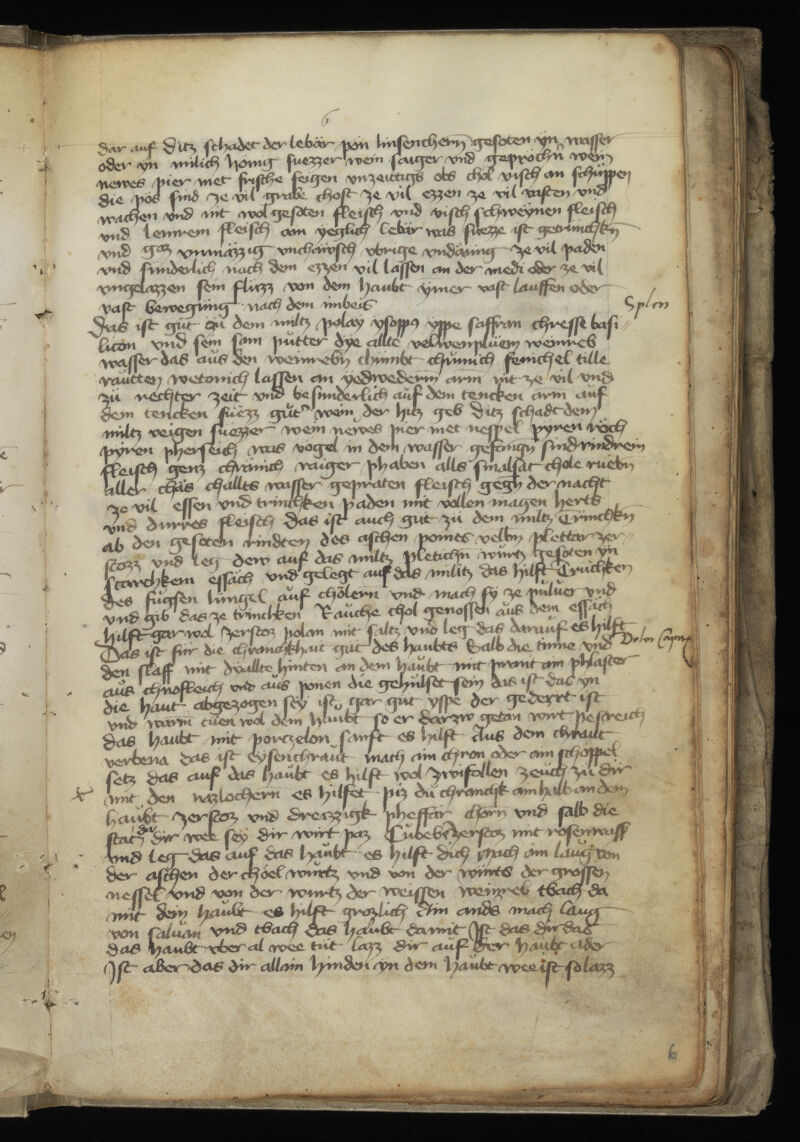 6
dar auf Ditz schadet der lebär pon linsenchern gesoten yn wasser
oder yn milich honig suezzer wein saiger vnd geprochn wein
newes pier met frische feigen vnzeittigs obs chol visch an schüppen
die pös sind ze vil grabe chost ze vil ezzen ze vil vasten vnd
wachen vnd nit wol gesoten fleisch vnd visch schweynen fleisch
vnd lemrem fleisch am yeglich lebär was suezze ist getrinckhn
vnd gar vnmäzzig vnchäwsch vbrige vndäwing ze vil paden
vnd sunderlich nach dem ezzen vil lassen an der medi oder ze vil
vngelazzen sein fluzz von dem haubt ymer vast lauffen oder
vast bewegung nach dem imbeis
Splen
Das ist gut zu dem miltz polay ysopp yppe saffran chresse basi
licon vnd sein sam putter dye allte velwenpluem weinreb
wasser das aus den weinrebn chumbt chümich fenichel tille
rautten wetonich lassen an yedwederm arm nit ze vil vnd
zü rechter zeit vnd besunderlich auf dem tencken arm auf
dem tencken fuezz gut wein der hitz geb Ditz schadt dem
miltz veigen suezzer wein newes pier met nespel pyren röch
pyren pherseich was vogel in dem wasser gefangn sind rindrein
fleisch genz chränich raiger phaben alls smalsat chole ruebn
aller chäs challts wasser gepraten fleisch gegn der nacht
ze vil essen vnd trinckhen paden mit vollen magen herts
vnd durres fleisch Das ist auch gut zu dem miltz Trinckhn
ab den gesoten rindten des aschen pomes velbn pletter zer
stozz vnd leg dew auf das miltz pletichn würtz gesoten yn
starchem essäch vnd gelegt auf das miltz das hilft Truckhen
des fuchsen lungel auf chölern vnd mach sy ze puluer vnd
vnd gib das ze trinckhen Rauche chol genossen aus dem essäch
hilft gar wol zerstoz polan mit saltz vnd leg das darauf es hilft
Dolor Capitis
Das ist für die chranckhait gut des haubts Salb die tinne vnd
den slaff mit dyallte hinten an dem haubt mit prant am phlaster
aus chnofleich vnd aus ponen die gehulset sein das ist das yn
die haut abgezogen sey ist gar gut yspe der gederrt ist
vnd warm tuen wol dem haubt so er darzw getan wirt Pestreich
das haubt mit porczelon sanft es hilft Aus dem chraut
verbena das ist eysenchraut mach ain chron oder ain schoppel
setz das auf das haubt es hilft wol zwisollen zeuch zu dir
mit den nazlochern es hilfet piz du chranckh ainhalb an dem
haubt zerstoz vnd dreizzigk pheffär chorn vnd salb die
stat da dir wee sey dir wirt paz Cubebn zerstoz mit rosenwasser
vnd leg das auf das haubt es hilft dich Mach ain laug von
der aschen der choel würtz vnd von der würts der grossen
nessel vnd von der wurtz der weissen weinreb twach da
mit dem haubt es hilft grozlich Ain ands mach laug
von saluan vnd twach das haubt damit Ist das dir das
das haubt vber al wee tut lazz dir auf der haubt ader
Ist aber das dir allain hinden yn dem haubt wee ist so lazz
6